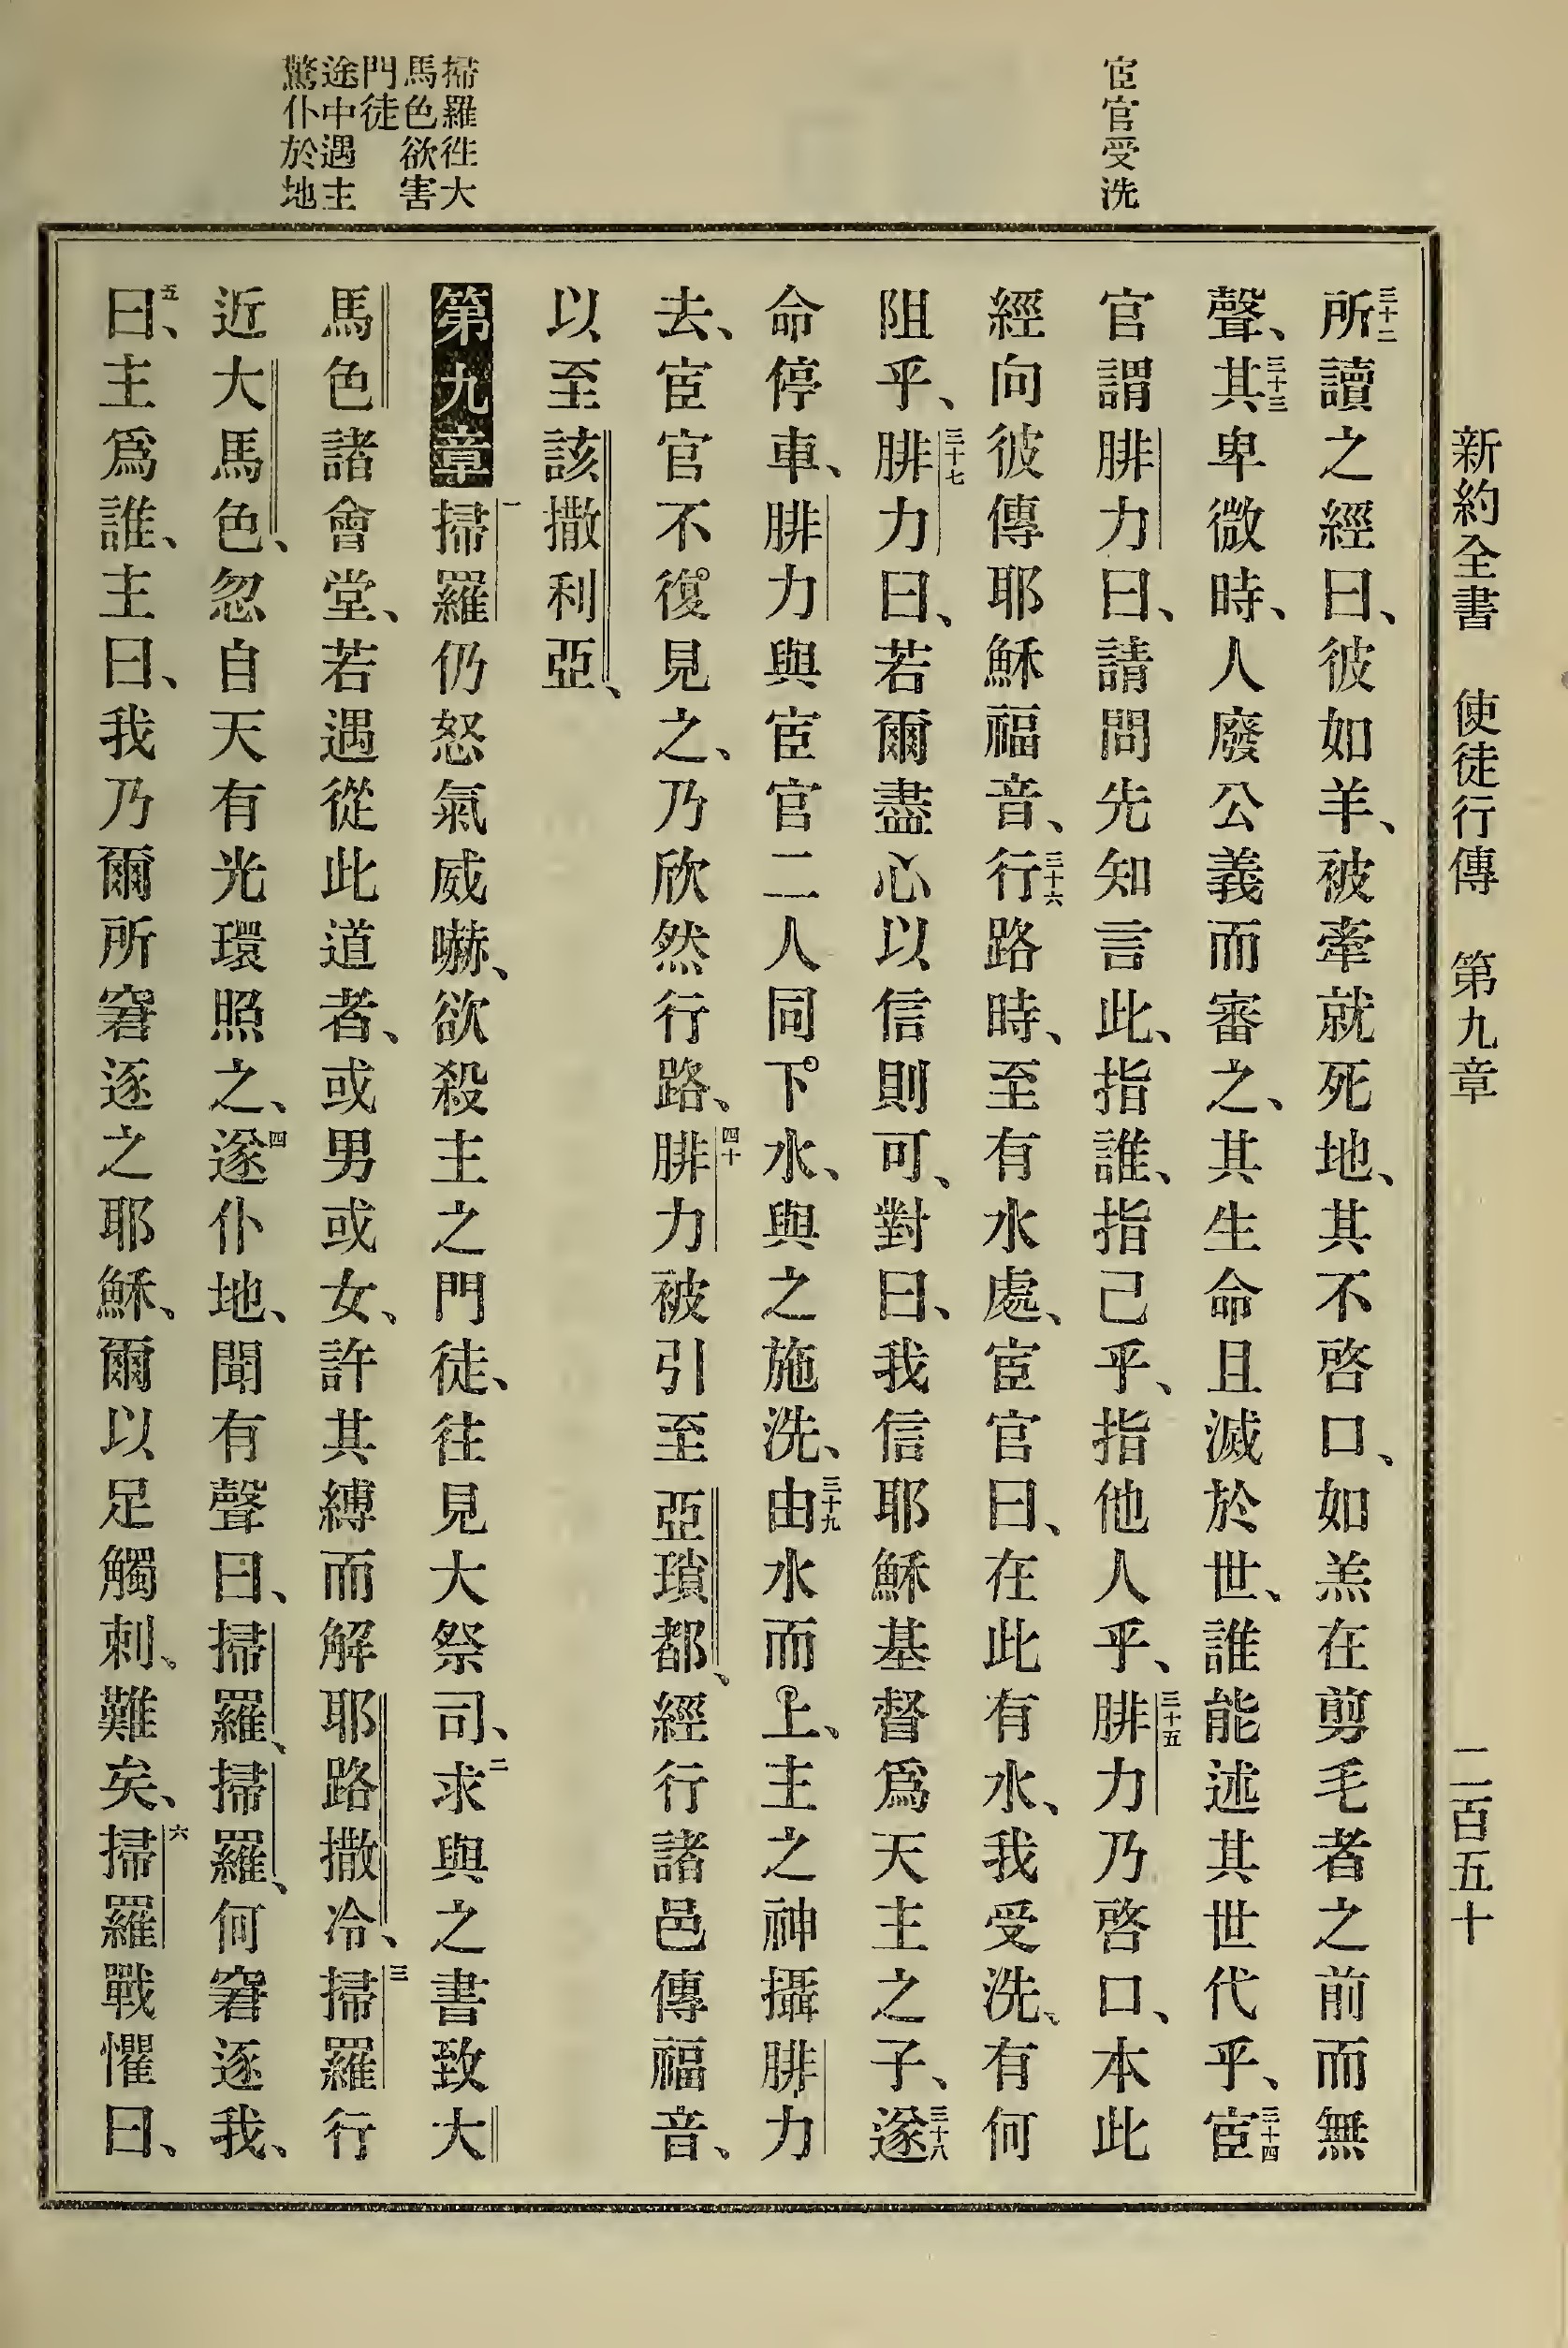 新約全書 使徒行傳 第九章 二百五十
宦官受洗
掃羅徃大
馬色欲害
門徒
途中遇主
驚仆於地
三十二所讀之經曰、彼如羊、被牽就死地、其不啓口、如羔在剪毛者之前而無
聲、三十三其卑微時、人廢公義而審之、其生命且滅於世、誰能述其世代乎、三十四宦
官謂腓力曰、請問先知言此、指誰、指己乎、指他人乎、三十五腓力乃啓口、本此
經向彼傳耶穌福音、三十六行路時、至有水處、宦官曰、在此有水、我受洗、有何
阻乎、三十七腓力曰、若爾盡心以信則可、對曰、我信耶穌基督爲天主之子、三十八遂
命停車、腓力與宦官二人同下水、與之施洗、三十九由水而上、主之神攝腓力
去、宦官不復見之、乃欣然行路、四十腓力被引至亞瑣都、經行諸邑傳福音、
以至該撒利亞、
第九章 一掃羅仍怒氣威嚇、欲殺主之門徒、往見大祭司、二求與之書致大
馬色諸會堂、若遇從此道者、或男或女、許其縛而解耶路撒冷、三掃羅行
近大馬色、忽自天有光環照之、四遂仆地、聞有聲曰、掃羅、掃羅、何窘逐我、
五曰、主爲誰、主曰、我乃爾所窘逐之耶穌、爾以足觸刺、難矣、六掃羅戰懼曰、